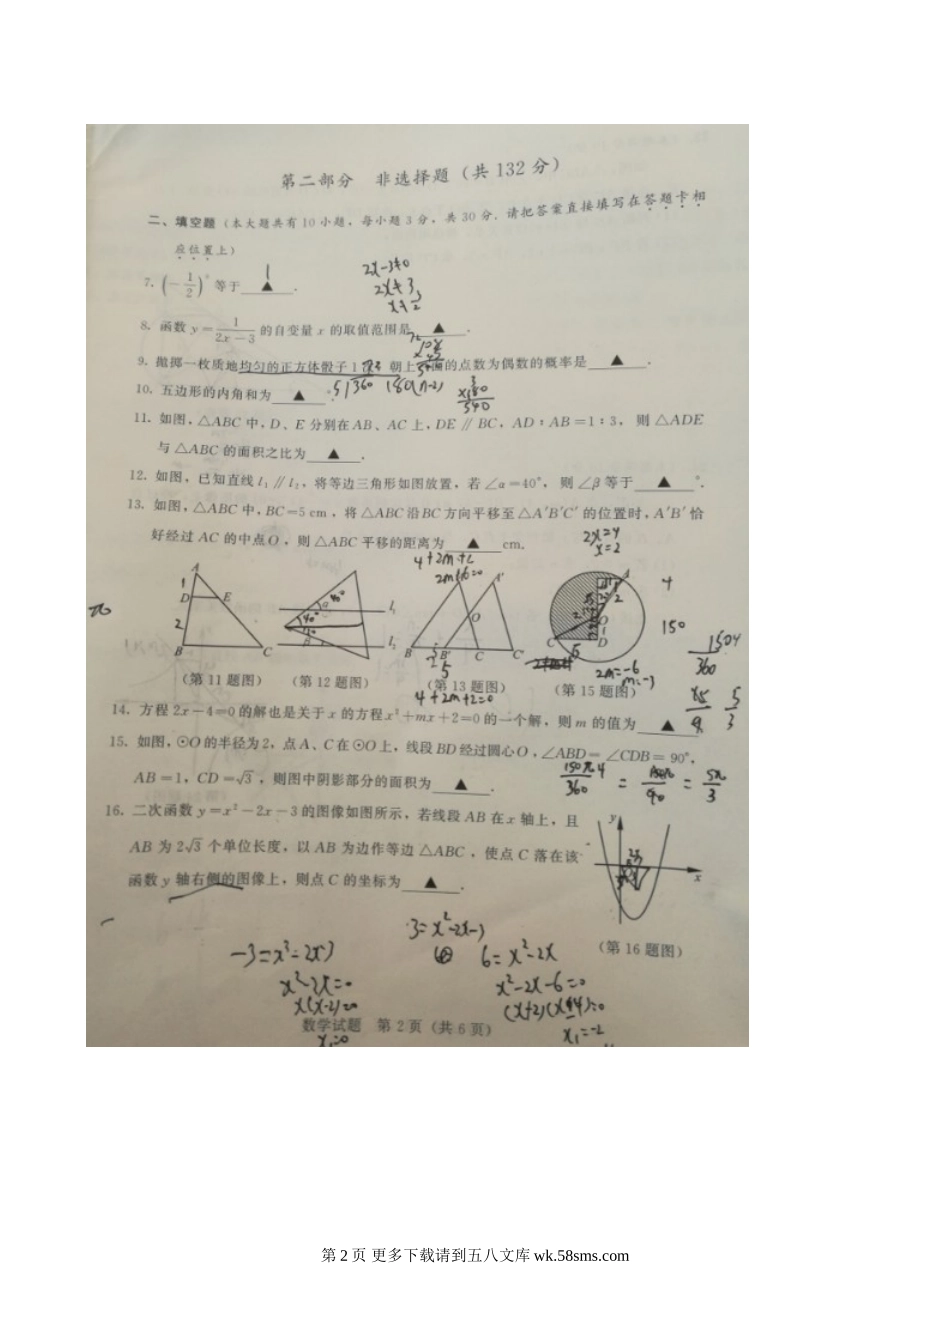 第二部分 非选择题（共 132 分）
二、填空题（本大题共有 10 小题，每小题 3 分，共 30 分．请把答案直接填写在答题卡相
应位置上）
7. (－1/2)⁰ 等于 ▲ ．
1
2x－3≠0
2x≠3
x≠3/2
8. 函数 y＝1/(2x－3) 的自变量 x 的取值范围是 ▲ ．
9. 抛掷一枚质地均匀的正方体骰子 1 次，朝上一面的点数为偶数的概率是 ▲ ．
10. 五边形的内角和为 ▲ °．
5 360 180(n-2)
540
11. 如图，△ABC 中，D、E 分别在 AB、AC 上，DE∥BC，AD∶AB＝1∶3， 则 △ADE
与 △ABC 的面积之比为 ▲ ．
12. 如图，已知直线 l₁∥l₂，将等边三角形如图放置，若 ∠α＝40°， 则 ∠β 等于 ▲ °．
13. 如图，△ABC 中，BC＝5 cm，将 △ABC 沿 BC 方向平移至 △A′B′C′ 的位置时，A′B′ 恰
好经过 AC 的中点 O ，则 △ABC 平移的距离为 ▲ cm．
2x=4
x=2
4+2m+2
2m+6=0
A
1
D E
2
B C
40°
40°
β
l₁
l₂
A′
O
B B′ C C′
5
A
2
O
1
C D
4
150
1504
360
（第 11 题图） （第 12 题图） （第 13 题图） （第 15 题图）
2m=-6
m=-3
4+2m+2=0
5
3
14. 方程 2x－4＝0 的解也是关于 x 的方程 x²＋mx＋2＝0 的一个解，则 m 的值为 ▲
15. 如图，⊙O 的半径为 2，点 A、C 在 ⊙O 上，线段 BD 经过圆心 O，∠ABD＝∠CDB＝90°，
AB＝1，CD＝√3 ，则图中阴影部分的面积为 ▲ ．
150π4
360
=
90
= 5π
3
16. 二次函数 y＝x²－2x－3 的图像如图所示，若线段 AB 在 x 轴上，且
AB 为 2√3 个单位长度，以 AB 为边作等边 △ABC ，使点 C 落在该
函数 y 轴右侧的图像上，则点 C 的坐标为 ▲ ．
y
x
（第 16 题图）
3=x²-2x-3
-3=x²-2x-3
6=x²-2x
x²-2x=0
x²-2x-6=0
x(x-2)=0
数学试题 第 2 页（共 6 页）
x₁=0
x₁=-2
第 2 页 更多下载请到五八文库 wk.58sms.com